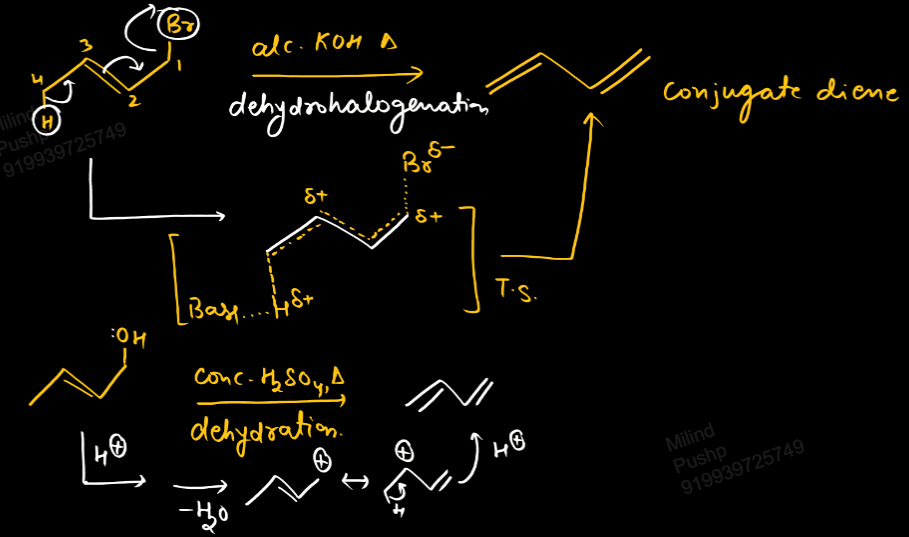 Br
3
alc. KOH Δ
1
4
2
H
dehydrohalogenation
conjugate diene
Milind
Pushp
919939725749
Br δ-
δ+
δ+
Base....H δ+
T.S.
:OH
conc. H2SO4, Δ
dehydration.
H⊕
⊕
↔
⊕
H⊕
-H2O
H
Milind
Pushp
919939725749